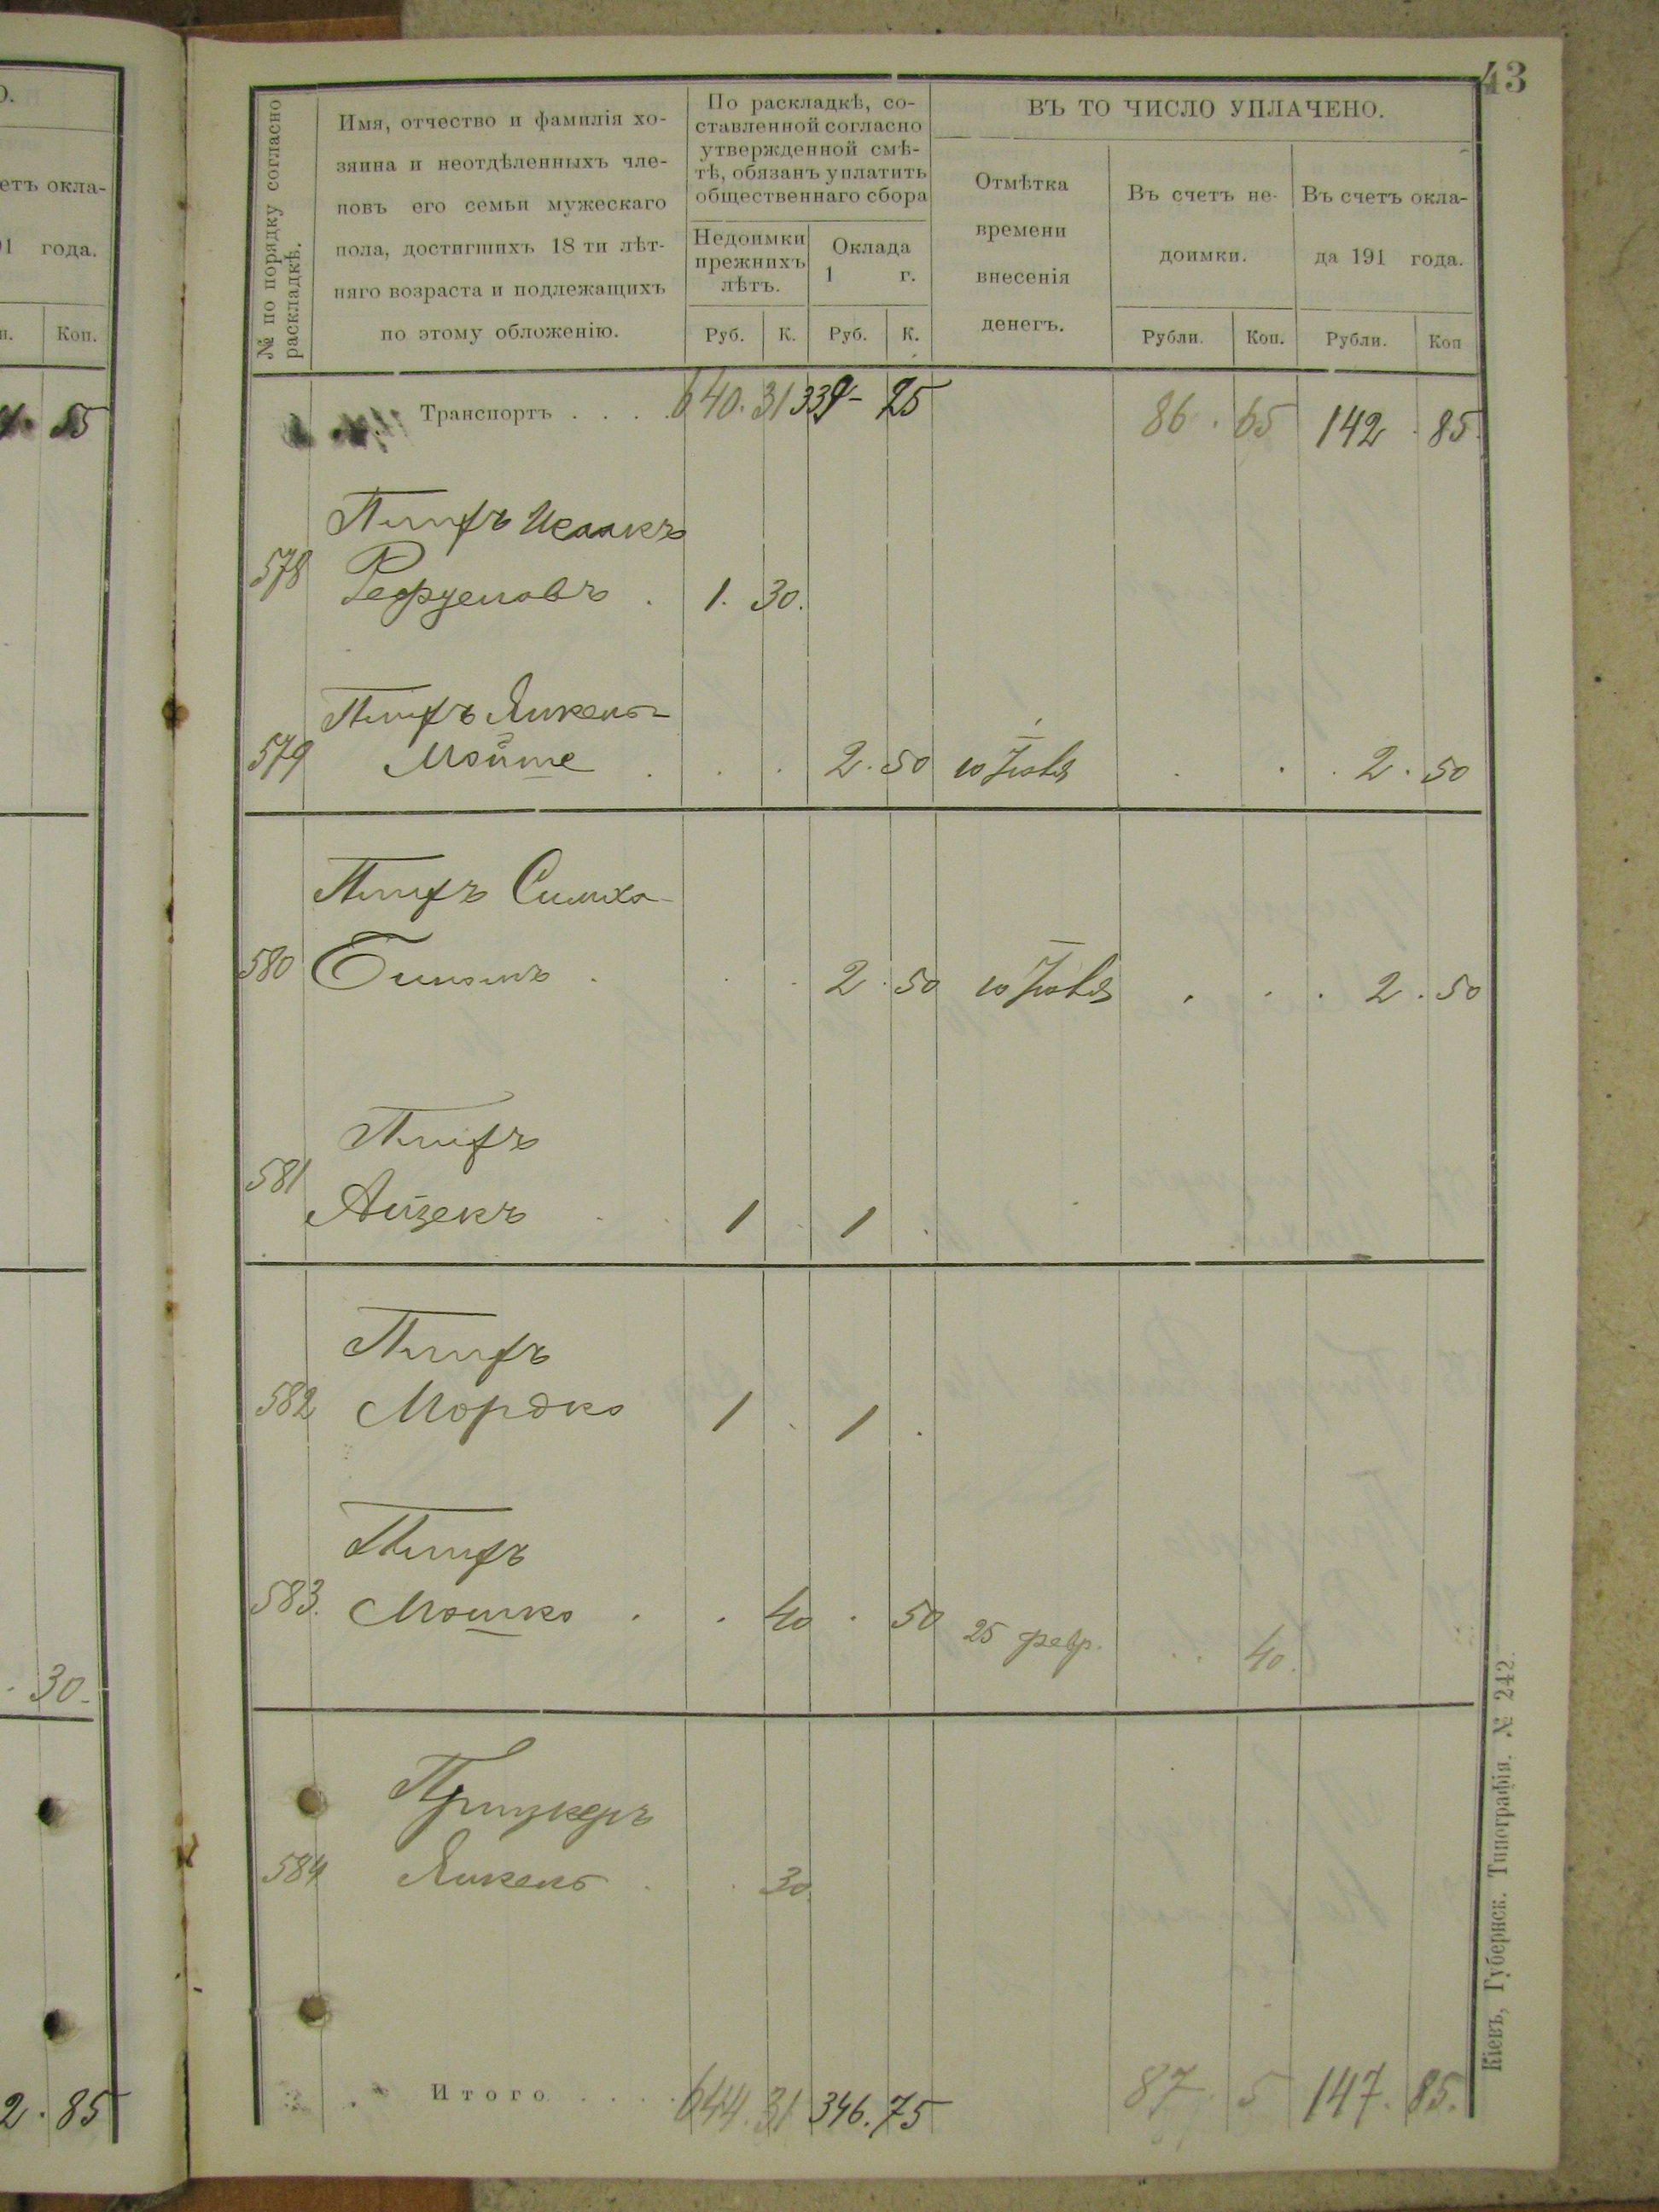 О.
етъ окла-
91 года.
Коп.
55
30.
2. 85
43
№ по порядку согласно
раскладкѣ.
Имя, отчество и фамилія хо-
зяина и неотдѣленныхъ чле-
новъ его семьи мужескаго
пола, достигшихъ 18 ти лѣт-
няго возраста и подлежащихъ
по этому обложенію.
По раскладкѣ, со-
ставленной согласно
утвержденной смѣ-
тѣ, обязанъ уплатить
общественнаго сбора
Недоимки
прежнихъ
лѣтъ.
Оклада
1 г.
Руб. К. Руб. К.
ВЪ ТО ЧИСЛО УПЛАЧЕНО.
Отмѣтка
времени
внесенія
денегъ.
Въ счетъ не-
доимки.
Въ счетъ окла-
да 191 года.
Рубли. Коп. Рубли. Коп
Транспортъ . . . . 640. 31 339- 25 86 . 65 142 . 85.
Исаакъ
578 . 1. 30.
Янкель-
579 . . . 2. 50 10 . . . 2. 50
Симха-
580 . . . 2. 50 10 . . . 2. 50
581 Айзекъ . . 1 . 1 .
582 Мордко 1 . 1 .
583. Мошко . . 40 . 50 25 февр. . . 40.
Прицкеръ
584 Янкель . . 30
Итого . . . . 644. 31 346. 75 87. 5 147. 85.
Кіевъ, Губернск. Типографія. № 242.